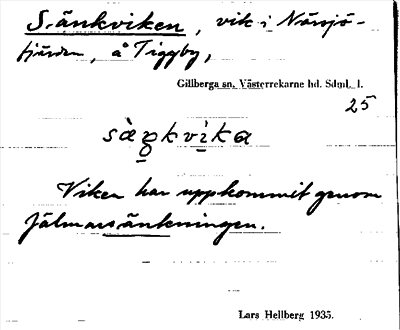 Sänkviken, vik i Näsnjö-
fjärden, å Tiggby,
Gillberga sn, Västerrekarne hd. Sdml. l.
25
sàŋkvìka
Viken har uppkommit genom
Jälmarsänkningen.
Lars Hellberg 1935.